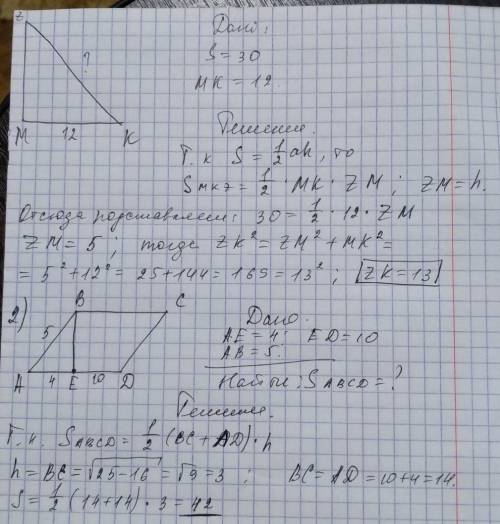 Z
?
M 12 K
Дано:
S = 30
MK = 12.
Решение.
Т.к S = 1/2 ah, то
S MKZ = 1/2 · MK · ZM; ZM = h.
Отсюда подставляем: 30 = 1/2 · 12 · ZM
ZM = 5; тогда ZK² = ZM² + MK² =
= 5² + 12² = 25 + 144 = 169 = 13²; ZK = 13
2)
B C
5
A 4 E 10 D
Дано:
AE = 4; ED = 10
AB = 5;
Найти: S ABCD = ?
Решение.
Т.к. S ABCD = 1/2 (BC + AD) · h
h = BC = √25 - 16 = √9 = 3; BC = AD = 10 + 4 = 14.
S = 1/2 (14 + 14) · 3 = 42